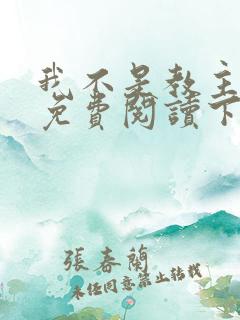 我不是教主
免費閱讀下
張春蘭
未經同意禁止轉載